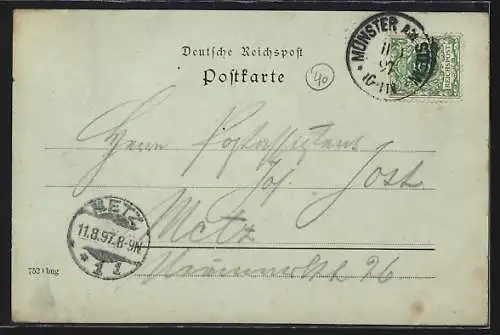 MÜNSTER AM STEIN
11 8
97
10-11V
Deutsche Reichspost
Postkarte
40
Herrn Postassistent
Jos. Jost
Metz
26
METZ
11.8.97.8-9N
* 1 1